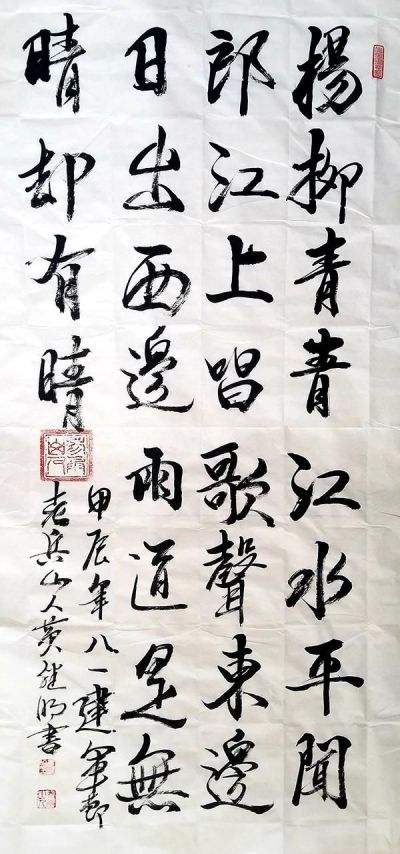 楊柳青青江水平聞
郎江上唱歌聲東邊
日出西邊雨道是無
晴却有晴
甲辰年八一建军節
老兵山人黄继明書